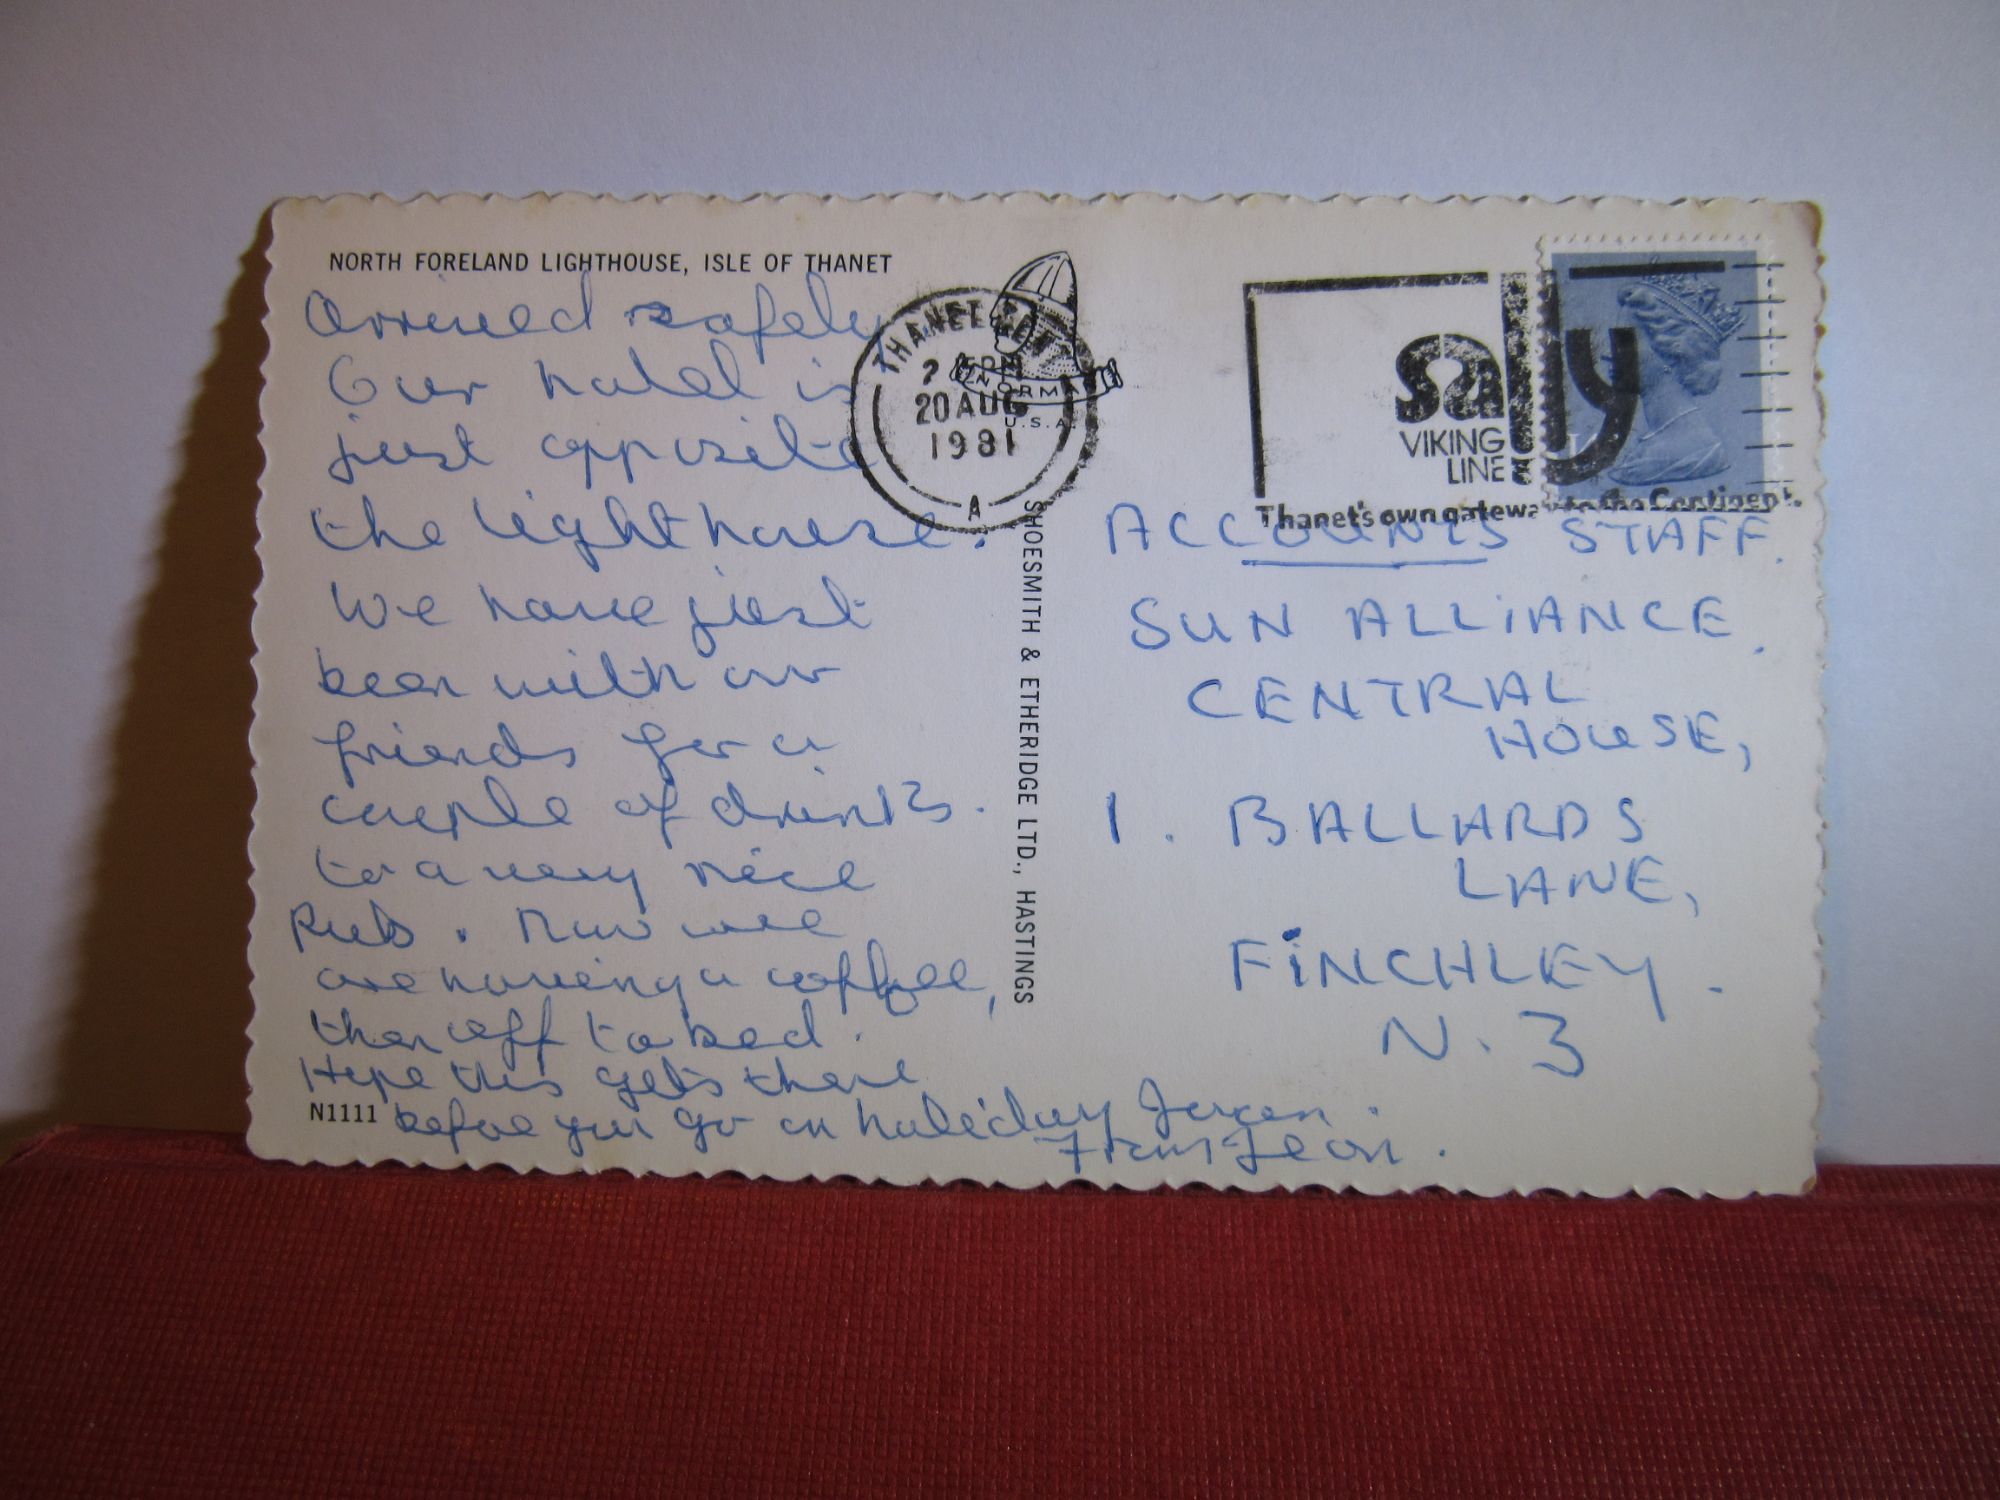 NORTH FORELAND LIGHTHOUSE, ISLE OF THANET
Arrived safely
Our hotel is
just opposite
the lighthouse.
We have just
been with our
friends for a
couple of drinks.
to a very nice
Pub. Now we
are having a coffee,
then off to bed.
Hope this gets there
before you go on holiday
From Jean.
N1111
SHOESMITH & ETHERIDGE LTD., HASTINGS
THANET KENT
20 AUG
1981
A
U.S.A.
sally
VIKING
LINE
Thanet's own gateway to the Continent.
ACCOUNTS STAFF.
SUN ALLIANCE.
CENTRAL
HOUSE,
1. BALLARDS
LANE,
FINCHLEY.
N.3